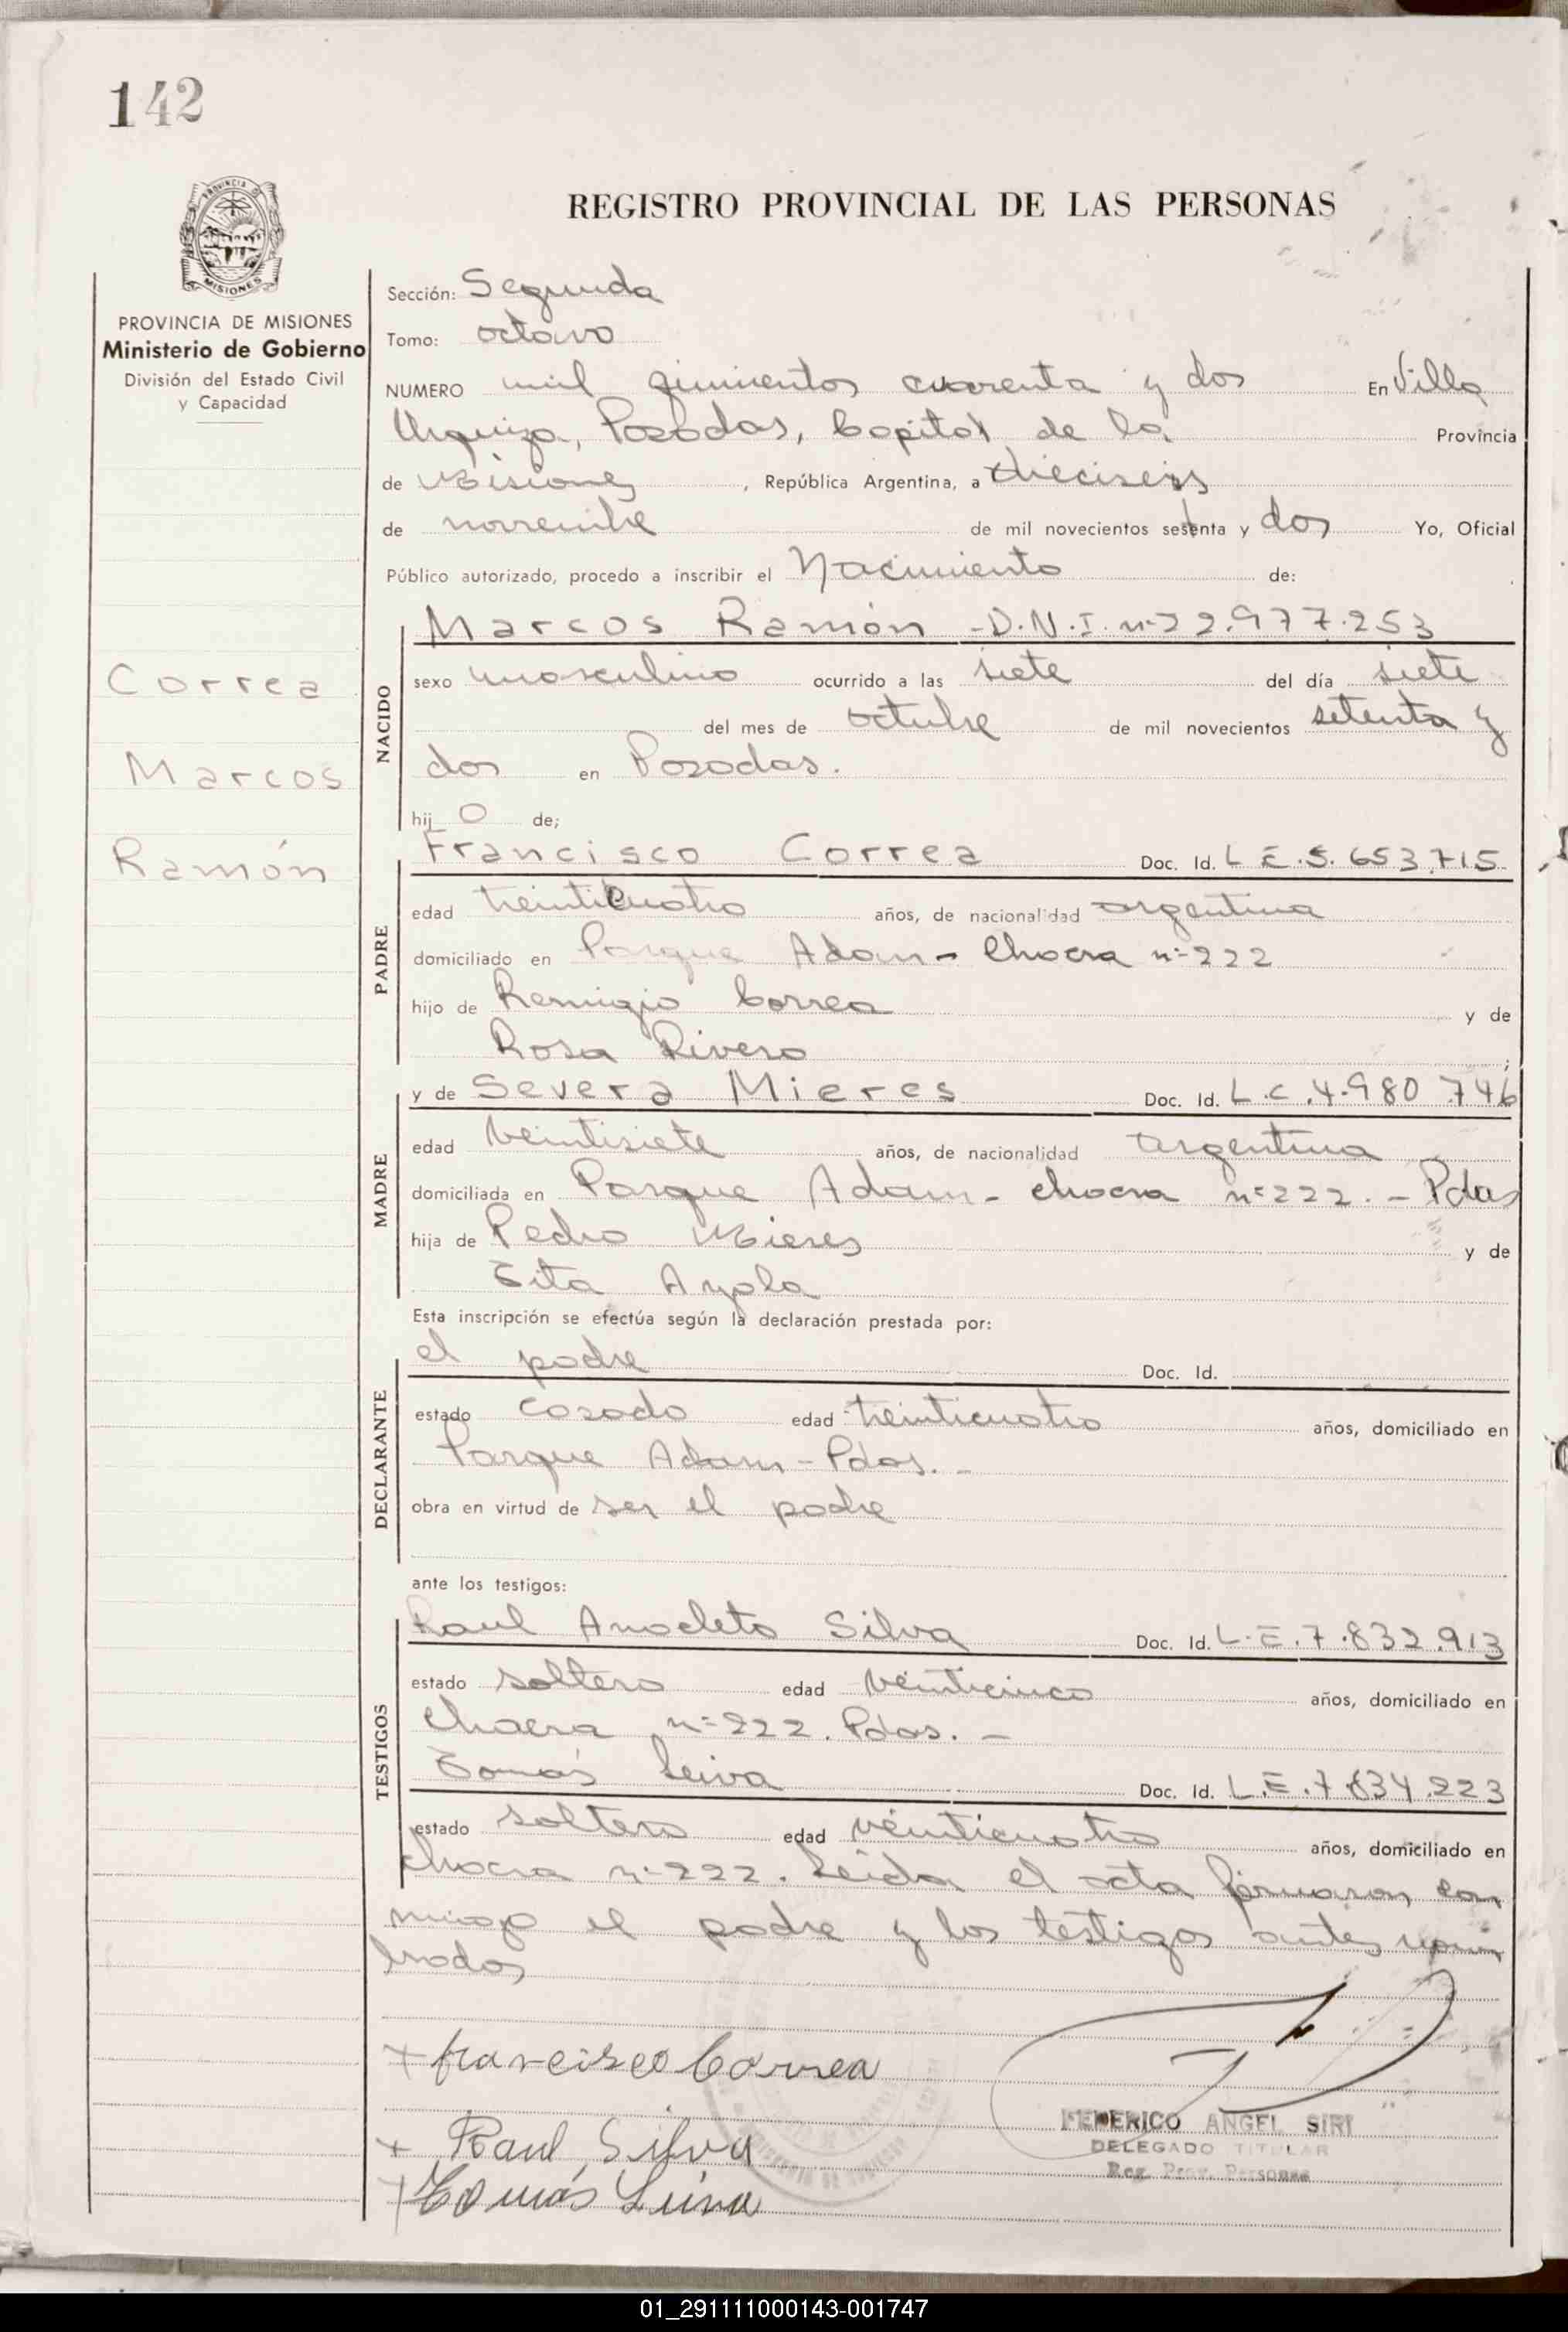 142
REGISTRO PROVINCIAL DE LAS PERSONAS
PROVINCIA DE MISIONES
Ministerio de Gobierno
División del Estado Civil
y Capacidad
Correa
Marcos
Ramón
Sección: Segunda
Tomo: octavo
NUMERO mil quinientos cuarenta y dos En Villa
Urquiza, Posadas, Capital de la Provincia
de Misiones, República Argentina, a dieciseis
de noviembre de mil novecientos setenta y dos Yo, Oficial
Público autorizado, procedo a inscribir el Nacimiento de:
NACIDO
Marcos Ramón - D.N.I. nº 22.977.253
sexo masculino ocurrido a las siete del día siete
del mes de octubre de mil novecientos setenta y
dos en Posadas.
hijo de;
PADRE
Francisco Correa Doc. Id. L E. 5. 653.715
edad treinticuatro años, de nacionalidad argentina
domiciliado en Parque Adam - Chacra nº 222
hijo de Remigio Correa y de
Rosa Rivero
MADRE
y de Severa Mieres Doc. Id. L.C. 4.980 746
edad veintisiete años, de nacionalidad argentina
domiciliada en Parque Adam - chacra nº 222. - Pdas
hija de Pedro Mieres y de
Tita Ayala
Esta inscripción se efectúa según la declaración prestada por:
DECLARANTE
el padre Doc. Id.
estado casado edad treinticuatro años, domiciliado en
Parque Adam - Pdas. -
obra en virtud de ser el padre
ante los testigos:
TESTIGOS
Raul Anacleto Silva Doc. Id. L.E. 7.832.913
estado soltero edad veinticinco años, domiciliado en
Chacra nº 222. Pdas. -
Tomás Leiva Doc. Id. L.E. 7.834.223
estado soltero edad veinticuatro años, domiciliado en
chacra nº 222. Leida el acta firmaron con
migo el padre y los testigos antes nom
brados
+ francisco Correa
+ Raul Silva
+ Tomás Leiva
FEDERICO ANGEL SIRI
DELEGADO TITULAR
Reg. Prov. Personas
01_291111000143-001747